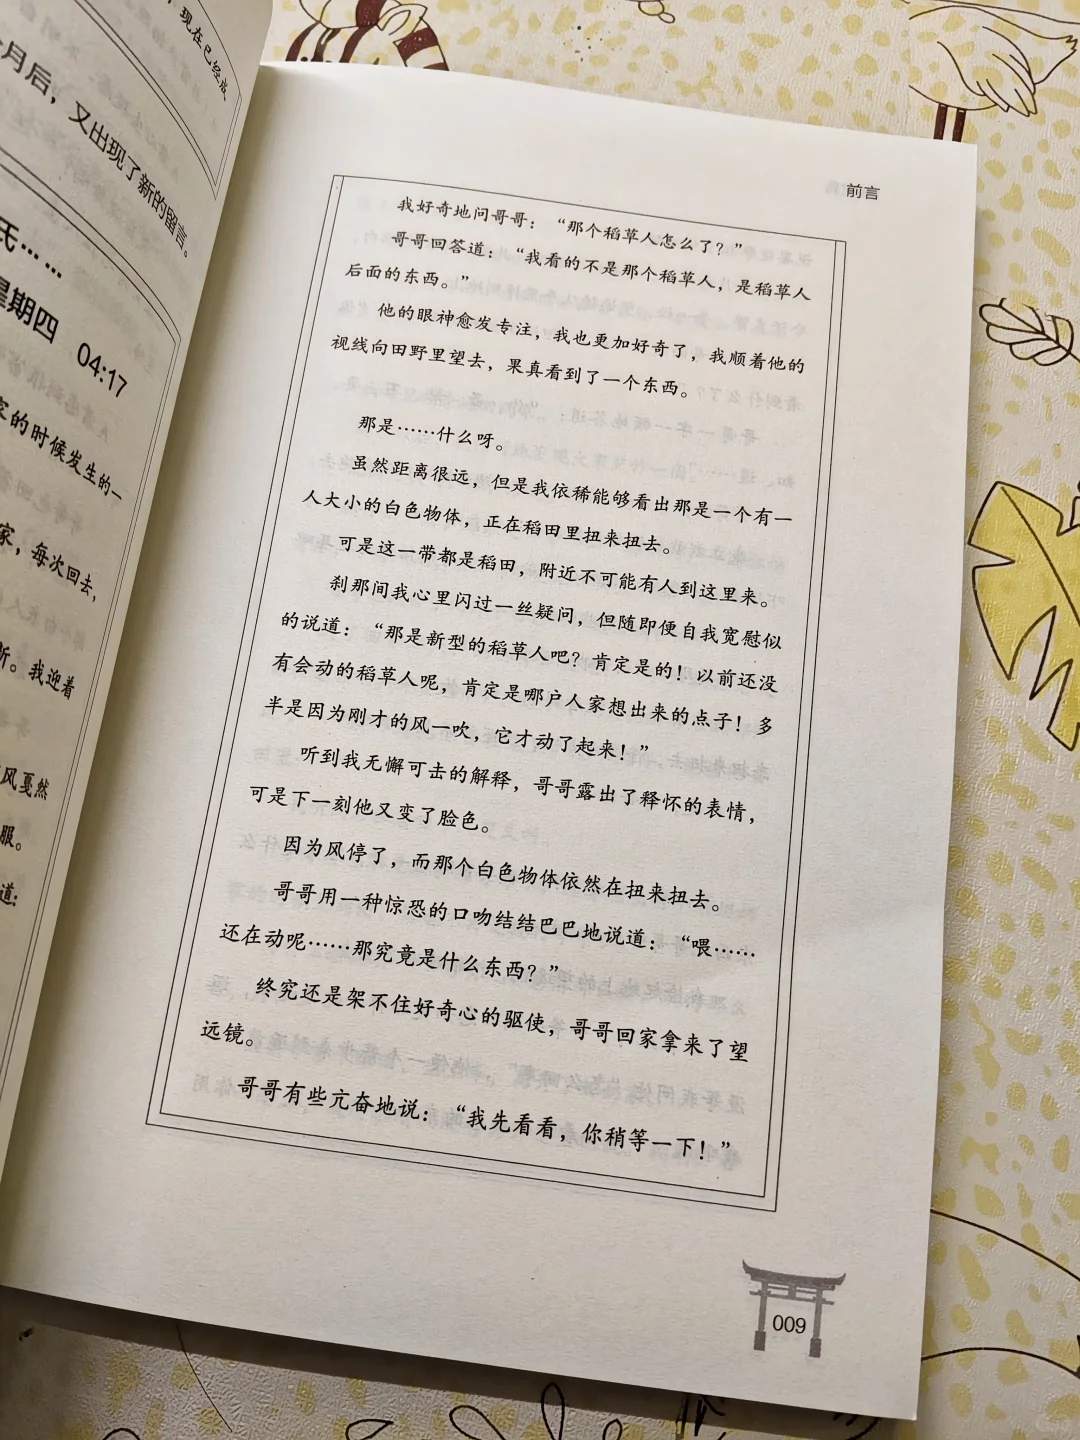 现在已经点
个月后，又出现了新的留言。
氏……
星期四 04:17
家的时候发生的一
家，每次回去，
所。我迎着
风戛然
服。
道：
前言
我好奇地问哥哥：“那个稻草人怎么了？”
哥哥回答道：“我看的不是那个稻草人，是稻草人
后面的东西。”
他的眼神愈发专注，我也更加好奇了，我顺着他的
视线向田野里望去，果真看到了一个东西。
那是……什么呀。
虽然距离很远，但是我依稀能够看出那是一个有一
人大小的白色物体，正在稻田里扭来扭去。
可是这一带都是稻田，附近不可能有人到这里来。
刹那间我心里闪过一丝疑问，但随即便自我宽慰似
的说道：“那是新型的稻草人吧？肯定是的！以前还没
有会动的稻草人呢，肯定是哪户人家想出来的点子！多
半是因为刚才的风一吹，它才动了起来！”
听到我无懈可击的解释，哥哥露出了释怀的表情，
可是下一刻他又变了脸色。
因为风停了，而那个白色物体依然在扭来扭去。
哥哥用一种惊恐的口吻结结巴巴地说道：“喂……
还在动呢……那究竟是什么东西？”
终究还是架不住好奇心的驱使，哥哥回家拿来了望
远镜。
哥哥有些亢奋地说：“我先看看，你稍等一下！”
009